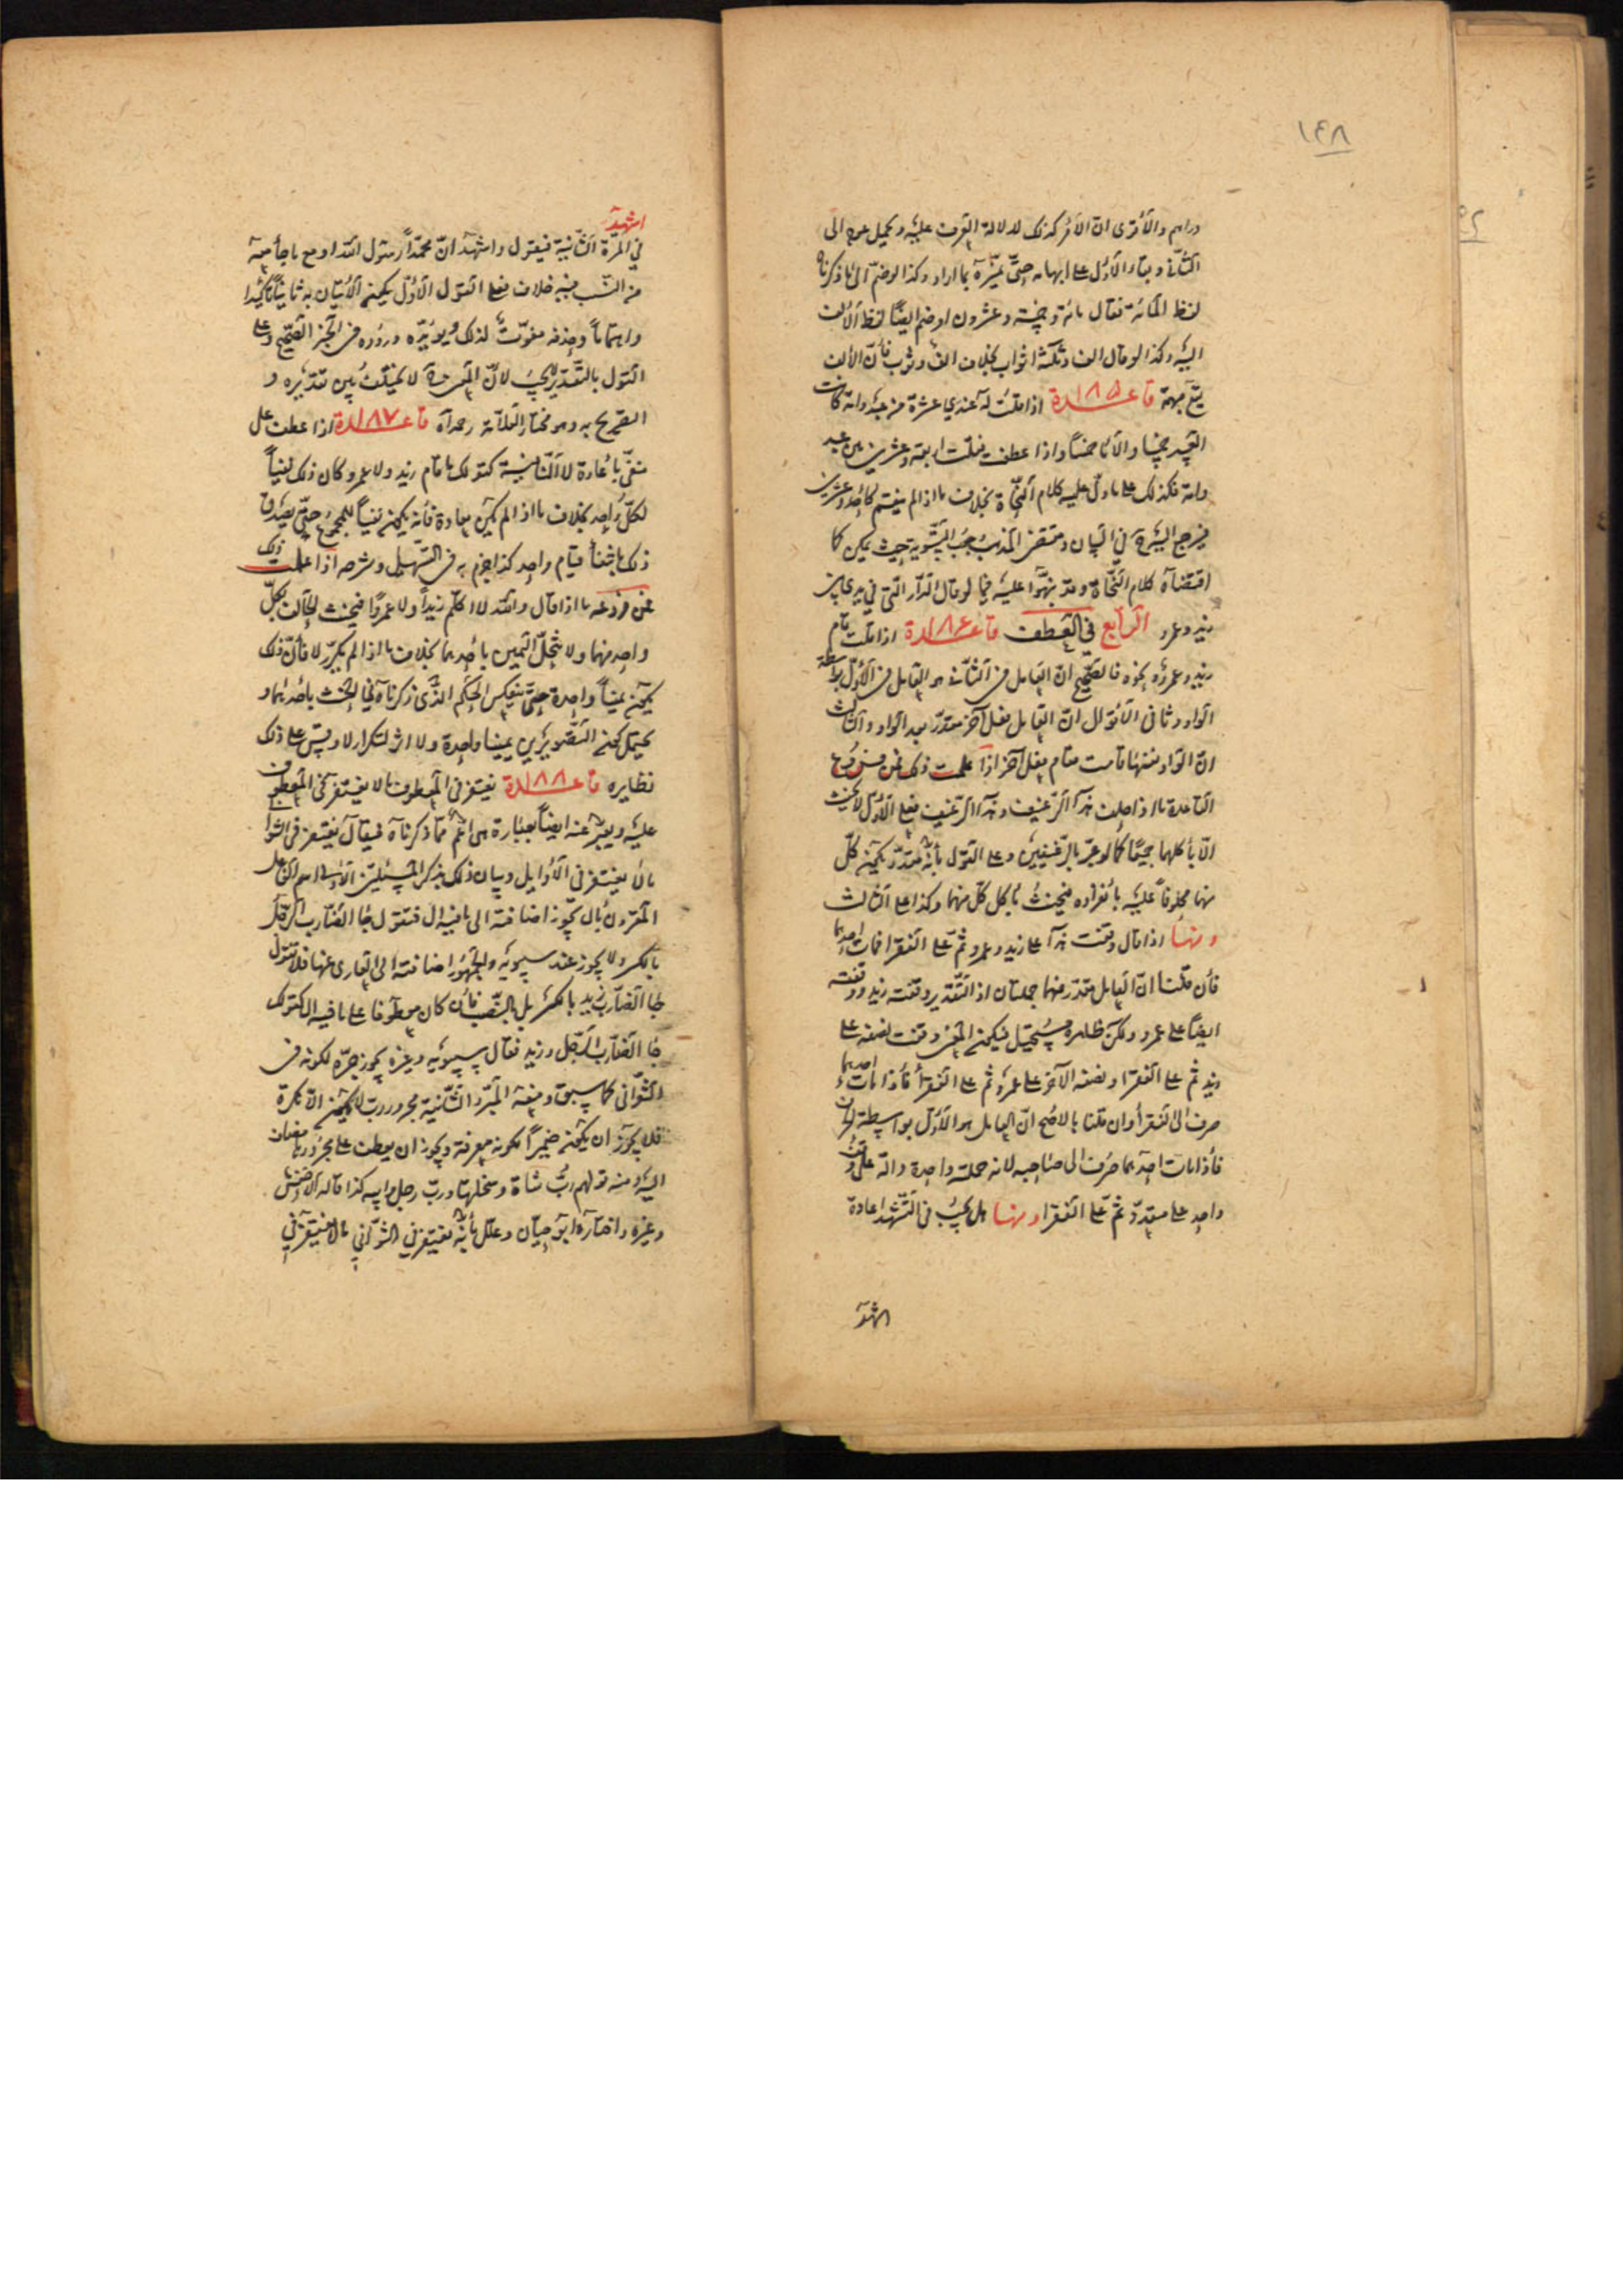 ١٤٨
دراهم والأقوى ان الأمر كذلك لدلالة العرف عليه ويحيل عوده الى
الثاني وبقاء الأول على ابهامه حتى يميزه بما اراد وكذا لو ضم الى ما ذكرناه
لفظ المائة فقال مائة وخمسة وعشرون او ضم ايضاً لفظ الألف
اليه وكذا لو قال الف وثلثة اثواب بخلاف الف وثوب فأن الألف
يبقى مبهمة قاعـ١٨٥ـدة اذا قلت له عندي عشرة من عبد وامة كانت
العبيد خمسا والأما خمساً واذا عطف فقلت اربعة وعشرين بين عبد
وامة فكذلك على ما دل عليه كلام النحاة بخلاف ما اذا لم ينقسم كأحد وعشرين
فيرجع اليه في البيان ومقتضى المذهب وجوب التسوية حيث يمكن كما
اقتضاه كلام النحاة وقد نبهوا عليه فيما لو قال الدار التي في يدي بين
زيد وعمرو الرابع في العطف قاعـ١٨٦ـدة اذا قلت قام
زيد وعمرو ونحوه فالصحيح ان العامل في الثاني هو العامل في الأول بواسطة
الواو وثاني الأقوال ان العامل فعل آخر مقدر بعد الواو والثالث
ان الواو نفسها قامت مقام فعل آخر اذا علمت ذلك فمن فروع
القاعدة ما اذا حلف هذا الرغيف وهذا الرغيف فعلى الأول لا يحنث
الا بأكلها جميعا كما لو عبر بالرغيفين وعلى القول بأنه مقدر يكون كل
منهما محلوفاً عليه بانفراده فيحنث بأكل كل منهما وكذا على الثالث
ومنها اذا قال وقفت هذا على زيد وعمرو ثم على الفقرا فمات احدهما
فأن قلنا ان العامل مقدر فهما جملتان اذ التقدير وقفته زيد ووقفته
ايضاً على عمرو ولكن ظاهره مستحيل فيكون المعنى وقفت نصفه على
زيد ثم على الفقرا ونصفه الآخر على عمرو ثم على الفقرأ فأذا مات احدهما
صرف الى الفقرأ وان قلنا بالأصح ان العامل هو الأول بواسطة الحرف
فأذا مات احدهما صرف الى صاحبه لانه جملة واحدة دالة على وقف
واحد على متعدد ثم على الفقرا ومنها هل يجب في التشهد اعادة
اشهد
اشهد
في المرة الثانية فيقول واشهد ان محمداً رسول الله اوضح ما جأ صحة
من النسب فيه خلاف فعلى القول الأول يكون الأتيان به ثانياً تأكيدا
واهتماماً وحذفه مفوت لذلك ويؤيده وروده في الخبر الصحيح وعلى
القول بالتقدير لا يجب لأن المعنى لا يختلف بين تقديره و
التصريح به وهو مختار العلامة رحمه الله قاعـ١٨٧ـدة اذا عطف على
منفى بأعادة لا النافية كقولك ما قام زيد ولا عمرو كان ذلك نفياً
لكل واحد بخلاف ما اذا لم يكن يعاده فأنه يكون نفياً للمجموع حتى يصدق
ذلك بانتفأ قيام واحد كذا جزم به في التسهيل وشرحه اذا علمت ذلك
فمن فروعه ما اذا قال والله لا اكلم زيداً ولا عمروًا فيحنث الحالف بكل
واحد منهما ولا تنحل اليمين بأحدهما بخلاف ما اذا لم يكرر لا فأن ذلك
يكون يميناً واحدة حتى ينعكس الحكم الذي ذكرناه في الحنث بأحدهما و
يحتمل كونه التصويرين يمينا واحدة ولا اثر لتكرار لا وقس على ذلك
نظايره قاعـ١٨٨ـدة يغتفر في المعطوف ما لا يغتفر في المعطوف
عليه ويعبر عنه ايضاً بعبارة هي اعم مما ذكرناه فيقال يغتفر في الثوانى
ما لا يغتفر في الأوايل وبيان ذلك بذكر المسئلتين الأولى اسم الفاعل
المقرون بال يجوز اضافته الى ما فيه ال فتقول جا الضارب الرجل
بالكسر ولا يجوز عند سيبويه والجمهور اضافته الى العارى عنها فلا تقول
جا الضارب زيد بالكسر بل بالنصب فأن كان معطوفا على ما فيه ال كقولك
جا الضارب الرجل وزيد فقال سيبويه وغيره يجوز جره لكونه في
الثوانى كما سبق ومنعه المبرد الثانية مجرور رب لا يكون الا نكرة
فلا يجوز ان يكون ضميراً لكونه معرفة ويجوز ان يعطف على مجرورها مضاف
اليه ومنه قولهم رب شاة وسخلتها ورب رجل وابيه كذا قاله الأخفش
وغيره واختاره ابو حيان وعلل بأنه يغتفر في الثوانى ما لا يغتفر في